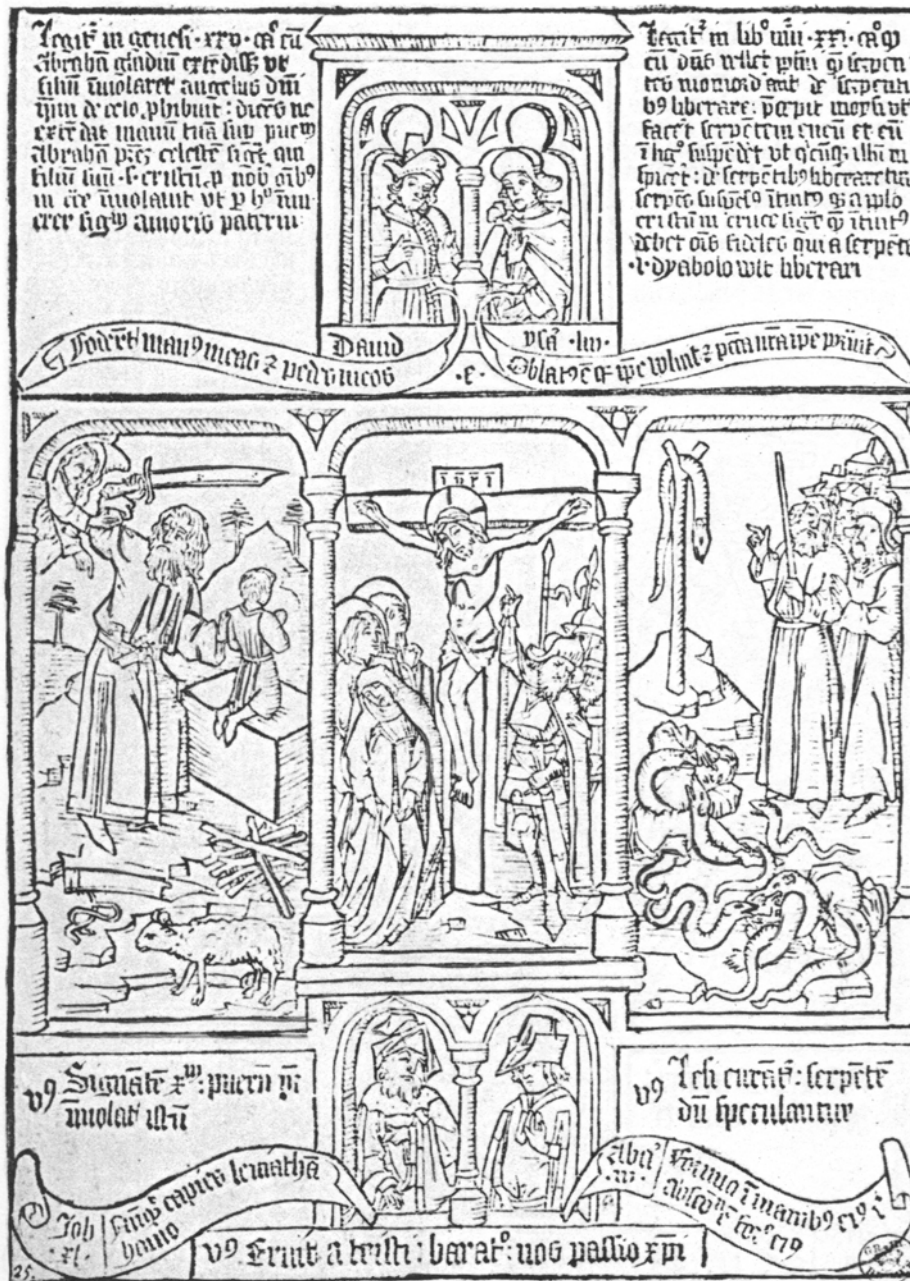 Legit̄ in genesi · xxv · ca° cū
abrahā gladiū exte͂diss; vt
filiū īmolaret angelus dn̄i
ip̄m de celo ꝓhibuit : dice͂s ne
exte͂das manū tuā sup̄ puerū
Abrahā pr̄e͂ celeste͂ siḡt qui
filiū suū · s · cristū ꝓ nob̄ oīb⁹
in c̄ce īmolauit vt ꝑ h⁹ īnu
eret sig⁰ amoris paterni
Legit̄ in lib° · xxi · ca° ꝙ
cū dn̄s vellet qͥ serpen
tes momord a͂nt de serpenti
b⁹ liberare : p̄cepit moysi vt
facēt serpentem eneū et eū
ī lig° suspe͂det vt qͥcūq; illū in
spicet : de serpe͂tib⁹ liberaretur
serpe͂s suspe͂s⁹ ītuit⁹ a ip̄lo
cristū in cruce siḡt qͥ ītuit⁹
debet oīs fideles qui a serpe͂te
· i · dyabolo vult liberari
Dauid
ysa͂ · liii ·
Foderūt man⁹ meas ⁊ pedes meos
· e ·
Oblat⁹ ē qͥ ip̄e voluit ⁊ pc̄ca nr̄a ip̄e p̄tuit
INRI
v⁹ Signāte͂ xp̄m : puerū pr̄
īmolat istū
v⁹ Lesi curāt̄ : serpe͂te͂
dū speculantur
Job
· xl ·
Nūqͥd capies leuiathā
hamo
Aba͂
· iii ·
Cornua ī manib⁹ ei⁹ i
absco͂ ē for° ei⁹
v⁹ Eruit a tristi : barat° : nos passio xp̄i
25.